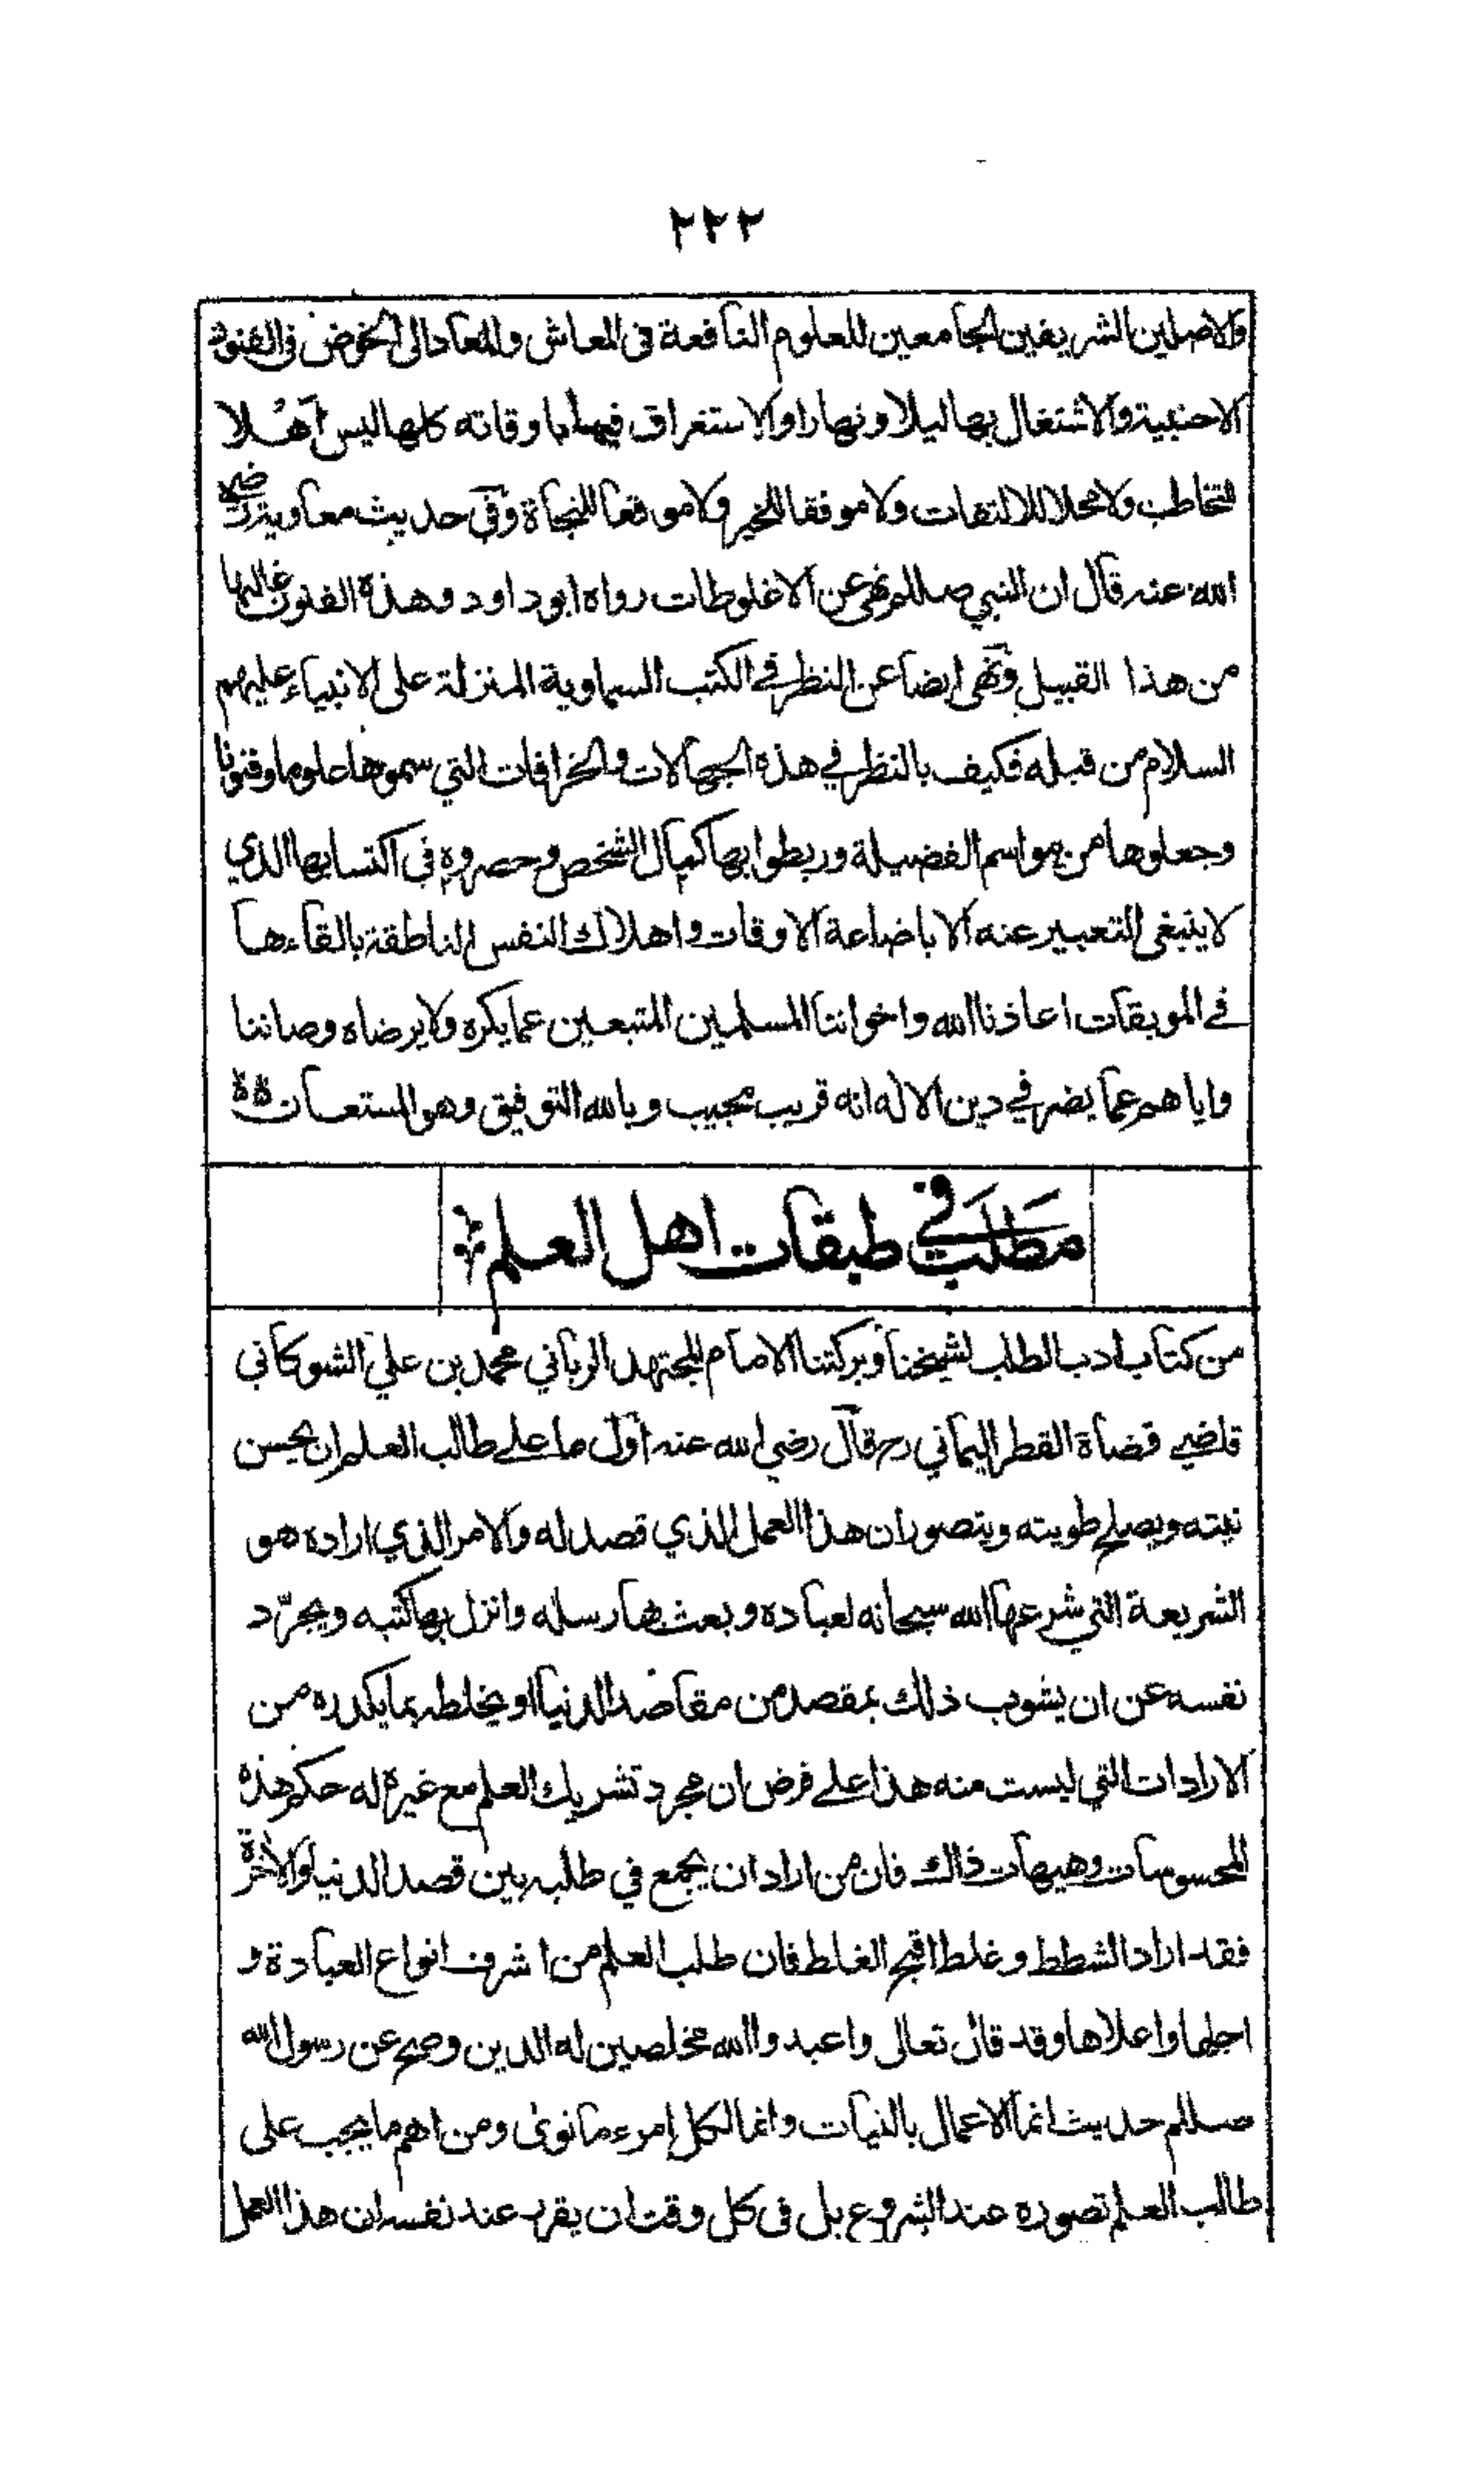 ٢٢٢
والاصلين الشريفين الجامعين للعلوم النافعة فى المعاش والمعاد الى الخوض فى الفنون
الاجنبية والاشتغال بها ليلا ونهارا والاستغراق فيها باوقاته كلها ليس اهلا
للتخاطب ولا محلا للالتفات ولا موفقا للخير ولا موقعا للنجاة وفي حديث معاوية رضي
الله عنه قال ان النبي صللم نهى عن الاغلوطات رواه ابو داود وهذه الفنون غالبها
من هذا القبيل ونهى ايضا عن النظر في الكتب السماوية المنزلة على الانبياء عليهم
السلام من قبله فكيف بالنظر في هذه الجهالات والخرافات التي سموها علوما وفنونا
وجعلوها من مواسم الفضيلة وربطوا بها كمال الشخص وحصروه في اكتسابها الذي
لا ينبغي التعبير عنه الا باضاعة الاوقات واهلاك النفس الناطقة بالقاءها
في الموبقات اعاذنا الله واخواننا المسلمين المتبعين عما يكره ولا يرضاه وصاننا
واياهم عما يضر في دين الاله انه قريب مجيب وبالله التوفيق وهو المستعان
مطلب في طبقات اهل العلم
من كتاب ادب الطلب لشيخنا وبركتنا الامام المجتهد الرباني محمد بن علي الشوكاني
قاضي قضاة القطر اليماني رح قال رضي الله عنه اول ما على طالب العلم ان يحسن
نيته ويصلح طويته ويتصور ان هذا العمل الذي قصد له والامر الذي اراده هو
الشريعة التي شرعها الله سبحانه لعباده وبعث بها رسله وانزل بها كتبه ويجرّد
نفسه عن ان يشوب ذلك بمقصد من مقاصد الدنيا او يخلطه بما يكدره من
الارادات التي ليست منه هذا على فرض ان مجرد تشريك العلم مع غيره له حكم هذه
المحسوسات وهيهات ذاك فان من اراد ان يجمع في طلبه بين قصد الدنيا والاخرة
فقد اراد الشطط وغلط اقبح الغلط فان طلب العلم من اشرف انواع العبادة و
اجلها واعلاها وقد قال تعالى واعبدوا الله مخلصين له الدين وصح عن رسول الله
صللم حديث انما الاعمال بالنيات وانما لكل إمرء ما نوى ومن اهم ما يجب على
طالب العلم تصوره عند الشروع بل فى كل وقت ان يقرر عند نفسه ان هذا العمل